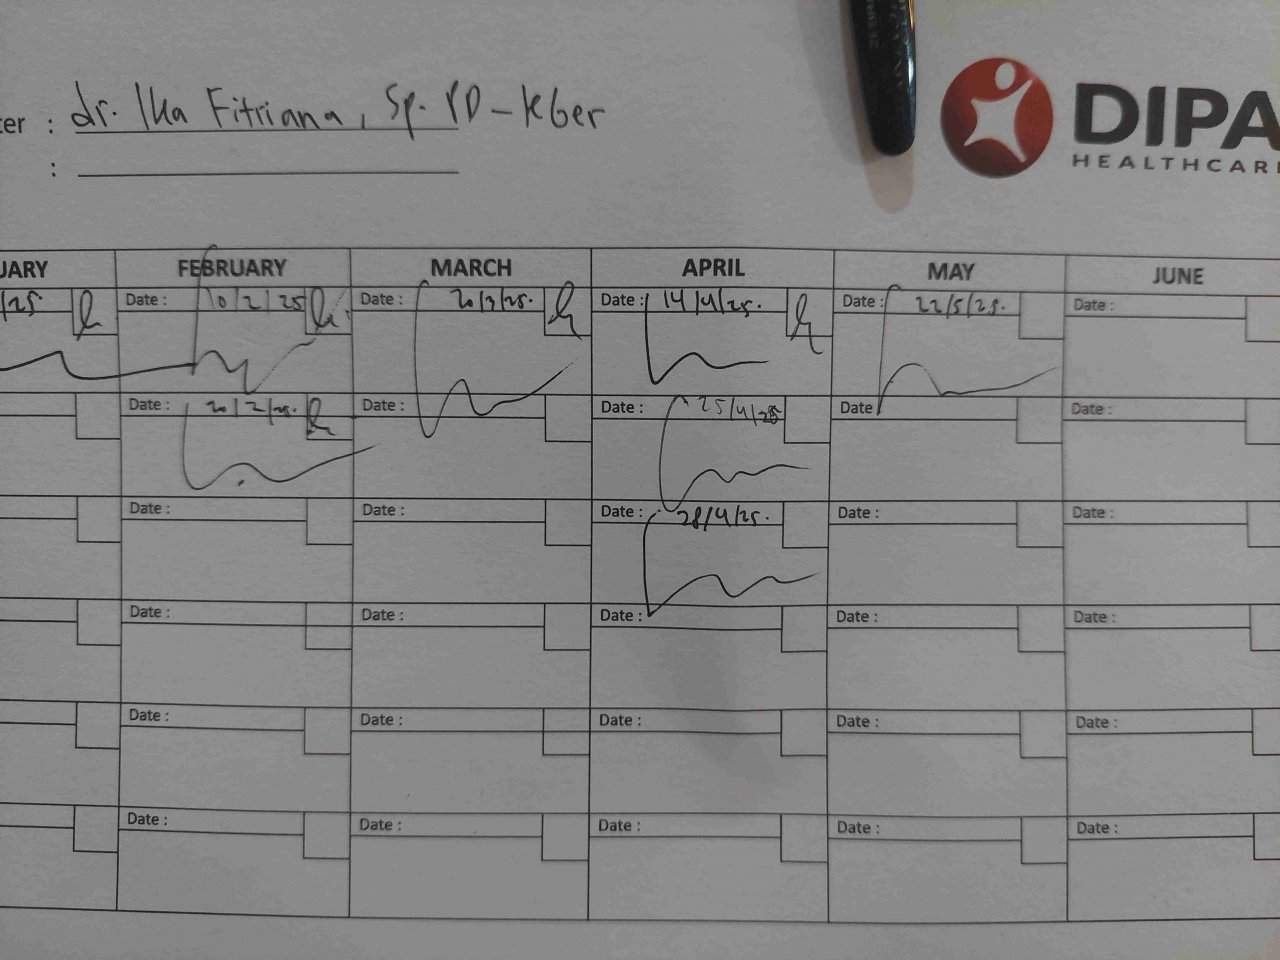 dr. Ika Fitriana, Sp. PD-KGer
DIPA
HEALTHCAR
FEBRUARY MARCH APRIL MAY JUNE
Date : 10/2/25 Date : 20/3/25. Date : 14/4/25. Date : 22/5/25. Date :
Date : 20/2/25. Date : Date : 25/4/25 Date Date :
Date : Date : Date : 28/4/25. Date : Date :
Date : Date : Date : Date : Date :
Date : Date : Date : Date : Date :
Date : Date : Date : Date : Date :